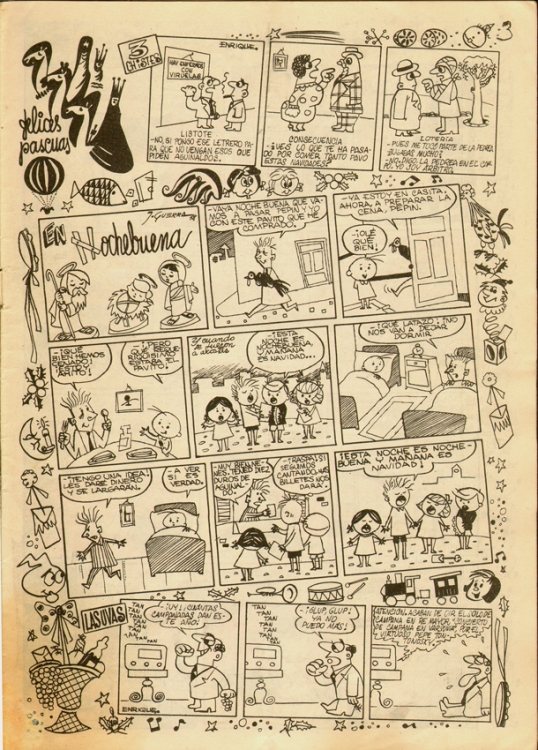 3
felices
pascuas
3
CHISTES
ENRIQUE.
HAY ENFERMOS
CON
VIRUELAS
LISTOTE
-NO, SI PONGO ESE LETRERO PA-
RA QUE NO VENGAN ESOS QUE
PIDEN AGUINALDOS..
CONSECUENCIA
-¡VES LO QUE TE HA PASA-
DO POR COMER TANTO PAVO
ESTAS NAVIDADES!
LOTERÍA
-PUES ME TOCÓ PARTE DE LA PEDREA
¿JUGABAS MUCHO?
-NO. PASO LA PEDREA EN EL CAM-
PO. YO SOY ÁRBITRO.
EN Nochebuena
-VAYA NOCHE BUENA QUE VA-
MOS A PASAR TEPÍN Y YO
CON ESTE PAVITO QUE HE
COMPRADO.
-YA ESTOY EN CASITA.
AHORA, A PREPARAR LA
CENA, PEPÍN.
-¡OLÉ
QUÉ
BIEN!
-¡QUÉ
BIEN HEMOS
CENADO
¡PERO
QUE
RIQUÍSIMO
ESTABA EL
PAVITO!
Y cuando
se fueron
a acostar
-¡ESTA
NOCHE ES
NOCHEBUENA,
Y MAÑANA
ES NAVIDAD...
¡QUÉ LATAZO! ¡NO
NOS VAN A DEJAR
DORMIR
-¡TENGO UNA IDEA!
LES DARÉ DINERO
Y SE LARGARÁN.
-A VER
SI ES
VERDAD.
-MUY BIEN, NE-
NES, TENED DIEZ
DUROS DE
AGUINAL-
DO.
¡RASPA! SI
SEGUIMOS
CANTANDO, MIL
BILLETES NOS
DARÁ.
-¡ESTA NOCHE ES NOCHE-
BUENA Y MAÑANA ES
NAVIDAD!
LAS UVAS
TAN
TAN
TAN
TAN
TAN
TAN
-¡UY! ¡CUÁNTAS
CAMPANADAS DAN ES-
TE AÑO!
ENRIQUE.
TAN
TAN
TAN
TAN
TAN
TAN
-¡GLUP, GLUP!
YA NO
PUEDO MÁS!
ATENCIÓN. ACABAN DE OÍR EL SOLO DE
CAMPANA EN RE MAYOR, "CONCIERTO
DE CAMPANA EN
VIRTUOSO, PEPE TON-